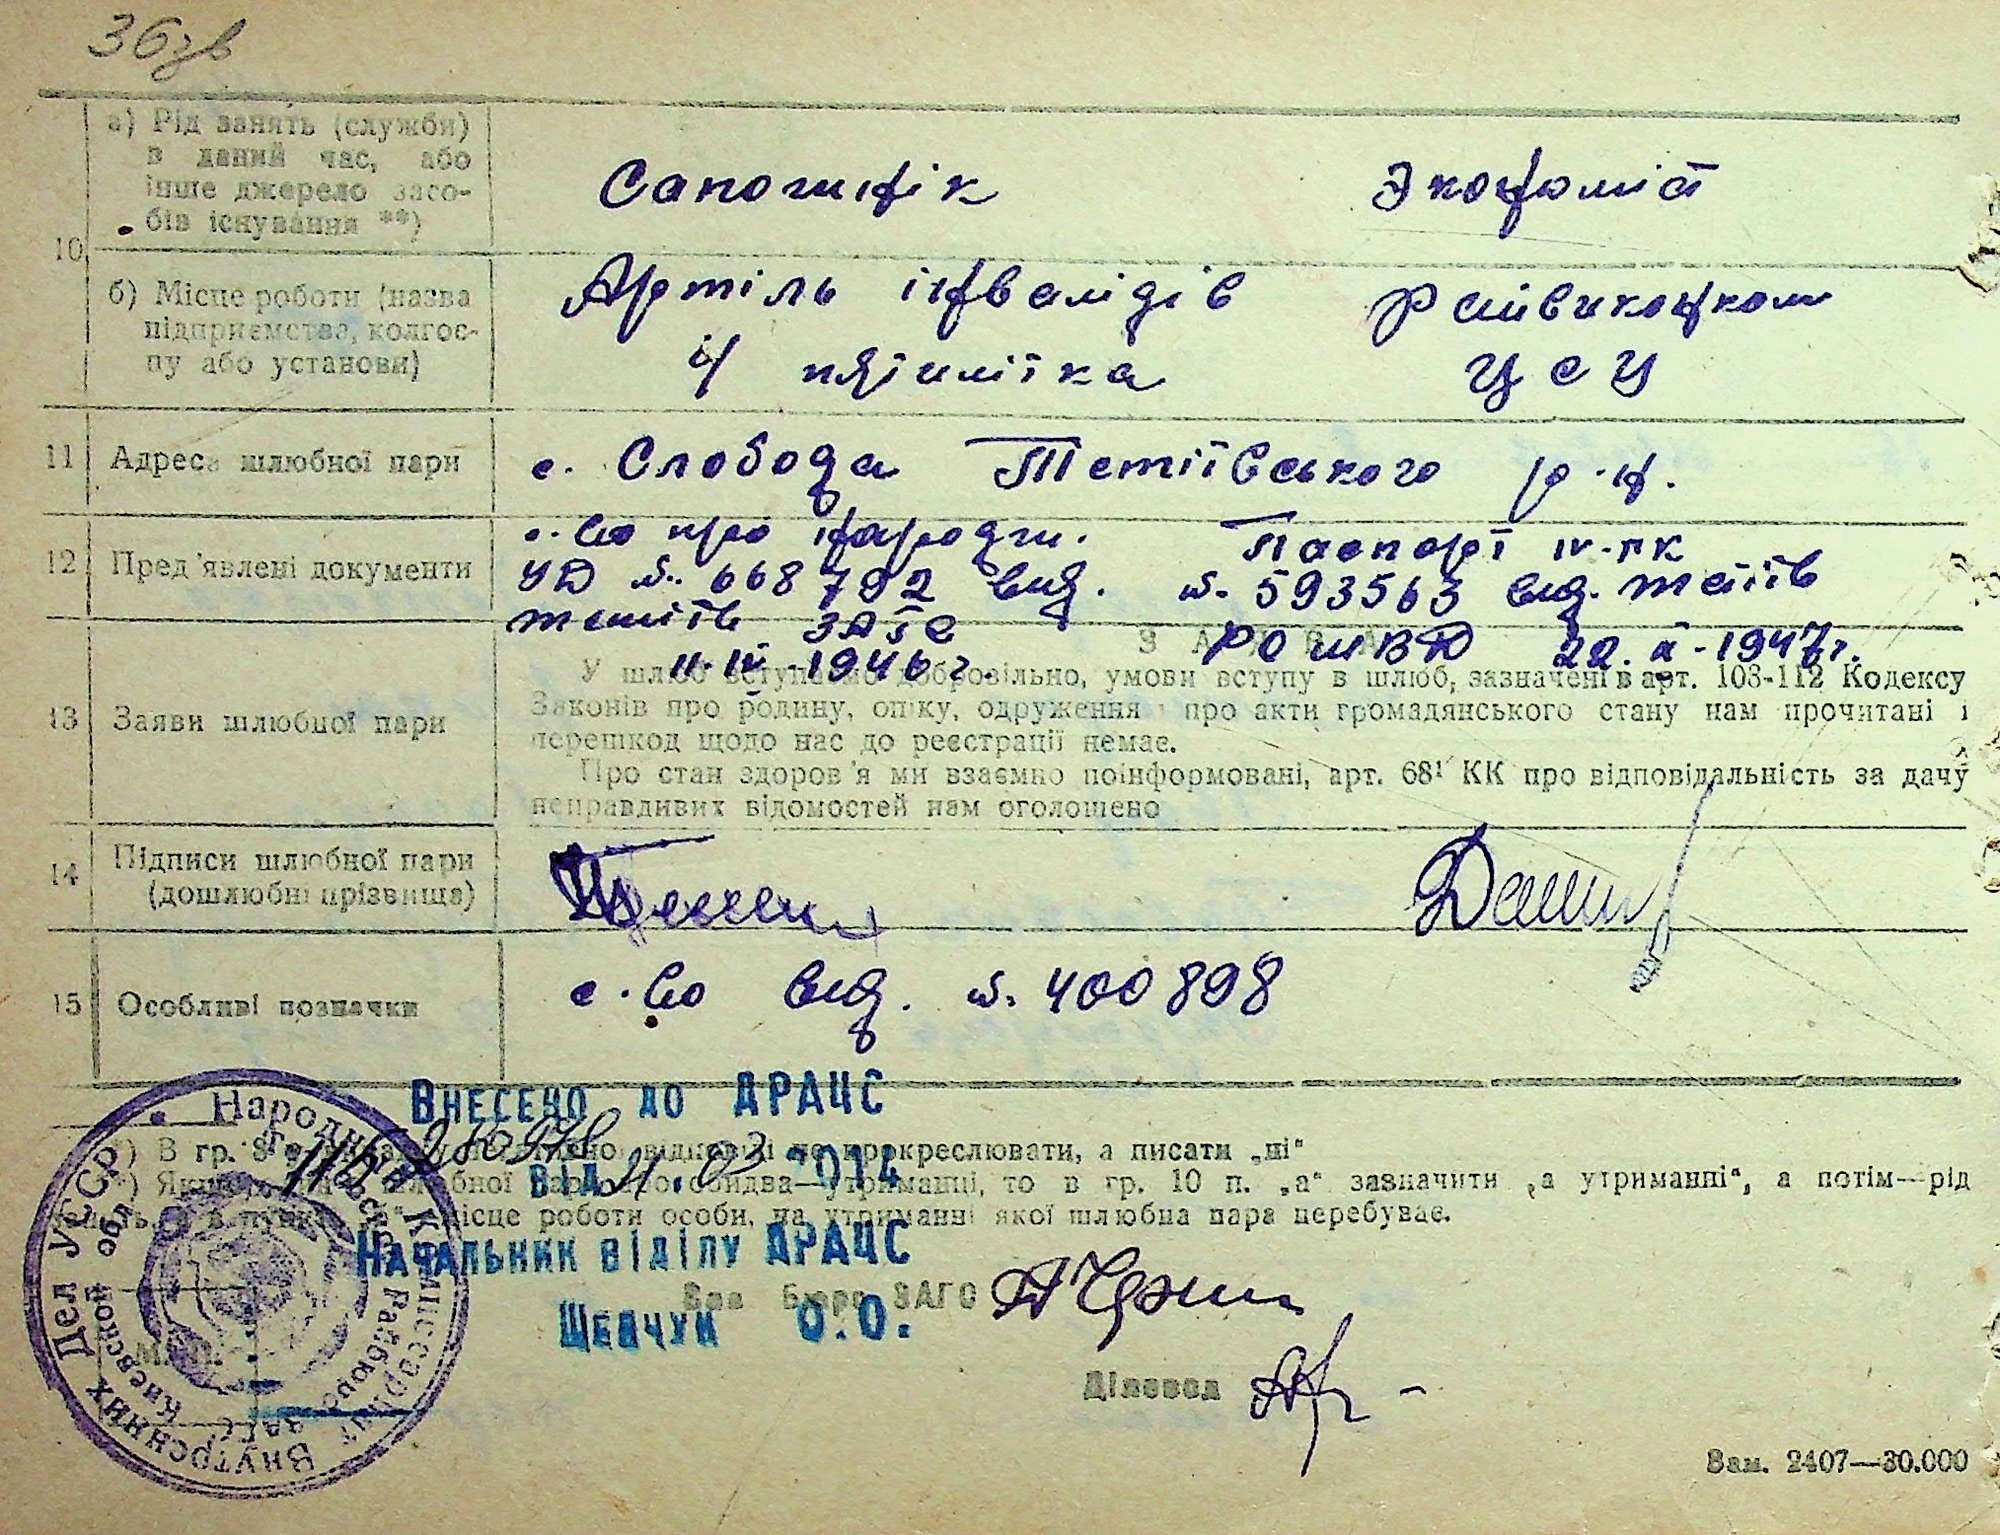 36зв
10
а) Рід занять (служби)
в даний час, або
інше джерело засо-
бів існування **)
Сапожнік
Экономіст
б) Місце роботи (назва
підприємства, колгос-
пу або установи)
Артіль інвалідів
Райвиконком
4 пятилітка
ЦСУ
11 Адреса шлюбної пари
с. Слобода Тетіївського р-н.
12 Пред'явлені документи
с.-во про народж.
УД №. 668792 вид.
тетіїв ЗАГС
11-IV-1946 г.
Паспорт IV-ПК
№. 593563 вид. тетіїв
РО МВД 22. X-1947г.
13 Заяви шлюбної пари
ЗАЯВА
У шлюб вступаємо добровільно, умови вступу в шлюб, зазначені в арт. 103-112 Кодексу
Законів про родину, опіку, одруження і про акти громадянського стану нам прочитані і
перешкод щодо нас до реєстрації немає.
Про стан здоров'я ми взаємно поінформовані, арт. 68¹ КК про відповідальність за дачу
неправдивих відомостей нам оголошено
14 Підписи шлюбної пари
(дошлюбні прізвища)
15 Особливі позначки
с.-во вид. №. 400898
Внесено до ДРАЦС
від 21.03 2014
Начальник відділу ДРАЦС
Шевчук О.О.
*) В гр. 8 відповіді не прокреслювати, а писати „ні“
**) Якщо шлюбної пари обидва—утриманці, то в гр. 10 п. „а“ зазначити „а утриманні“, а потім—рід
місце роботи особи, на утриманні якої шлюбна пара перебуває.
Зав. Бюро ЗАГС
Діловод
М. П.
Народный Комиссариат Внутренних Дел УССР
Киевской обл.
Райбюро ЗАГС
Зам. 2407—30.000